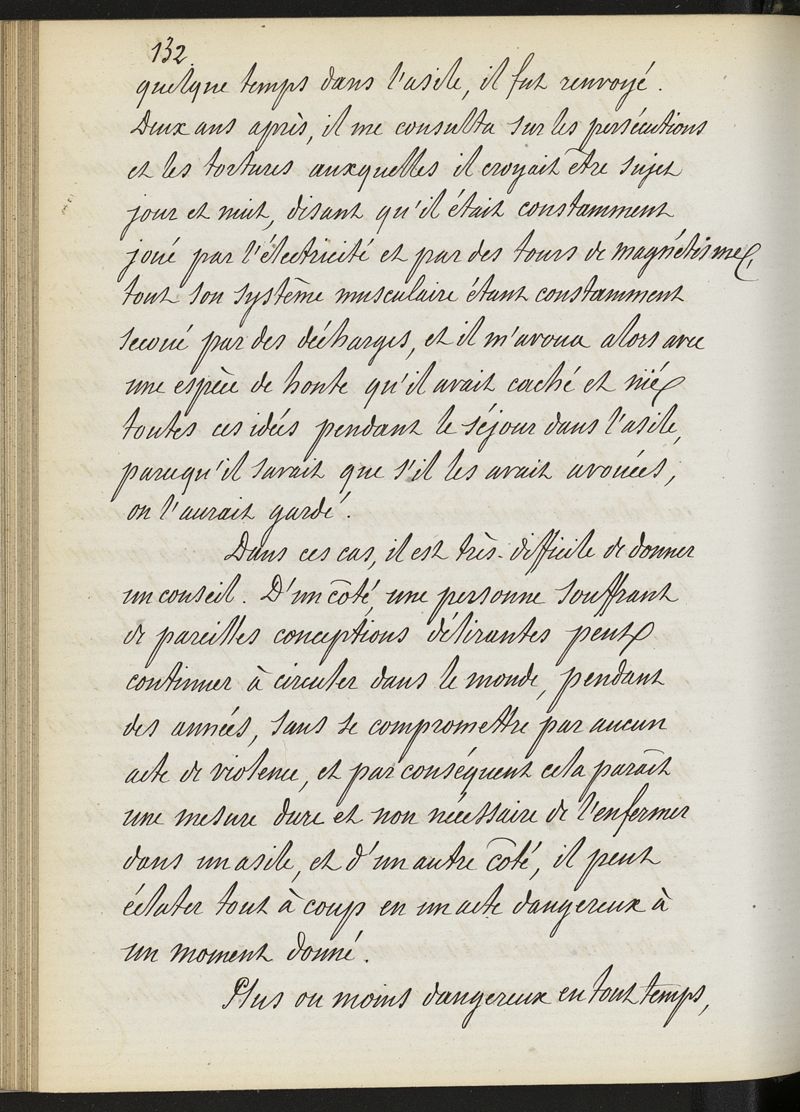 132.
quelque temps dans l'asile, il fut renvoyé.
Deux ans après, il me consulta sur les persécutions
et les tortures auxquelles il croyait être sujet
jour et nuit, disant qu'il était constamment
joué par l'électricité et par des tours de magnétisme,
tout son système musculaire étant constamment
secoué par des décharges, et il m'avoua alors avec
une espèce de honte qu'il avait caché et nié
toutes ces idées pendant le séjour dans l'asile,
parcequ'il savait que s'il les avait avouées,
on l'aurait gardé.
Dans ces cas, il est très-difficile de donner
un conseil. D'un côté, une personne souffrant
de pareilles conceptions délirantes peut
continuer à circuler dans le monde, pendant
des années, sans se compromettre par aucun
acte de violence, et par conséquent cela paraît
une mesure dure et non nécessaire de l'enfermer
dans un asile, et d'un autre côté, il peut
éclater tout à coup en un acte dangereux à
un moment donné.
Plus ou moins dangereux en tout temps,